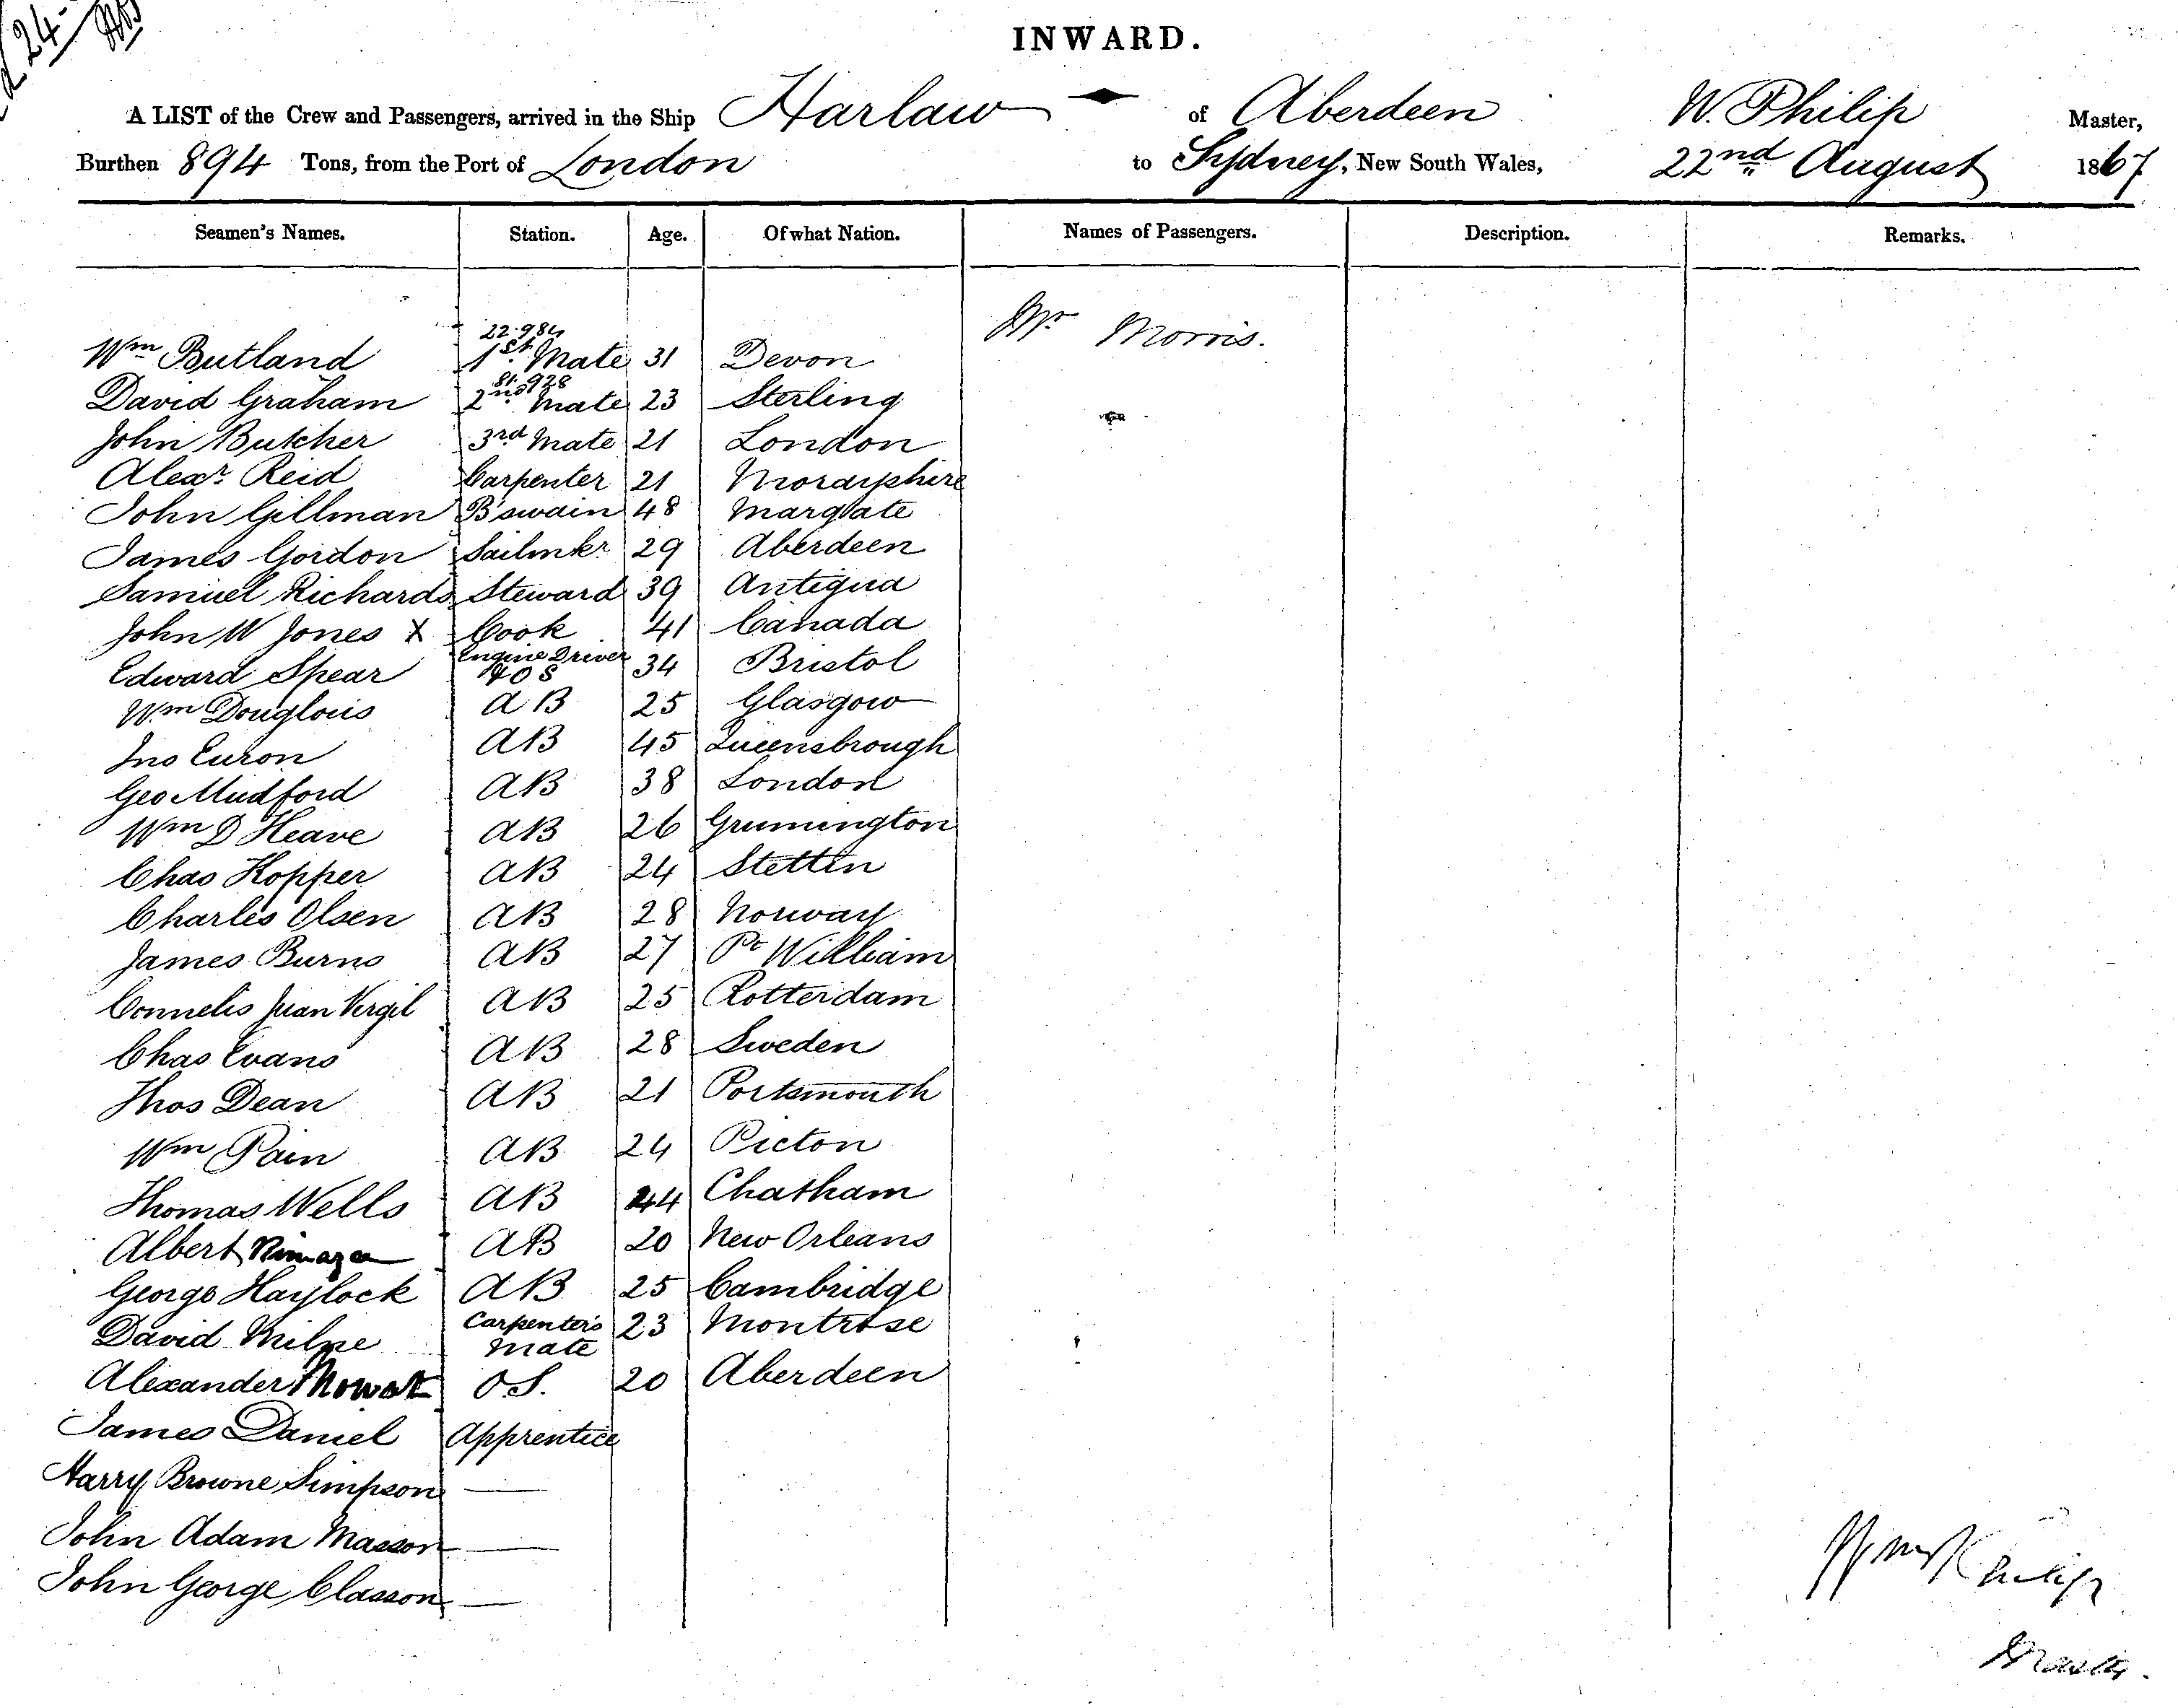 24
INWARD.
A LIST of the Crew and Passengers, arrived in the Ship Harlaw of Aberdeen W. Philip Master,
Burthen 894 Tons, from the Port of London to Sydney, New South Wales, 22nd August 1867
Seamen's Names. Station. Age. Of what Nation. Names of Passengers. Description. Remarks.
22.984
Wm Butland 1st Mate 31 Devon Mr Morris.
81.928
David Graham 2nd Mate 23 Sterling
John Butcher 3rd Mate 21 London
Alexr Reid Carpenter 21 Morayshire
John Gillman B'swain 48 Margate
James Gordon Sailmkr 29 Aberdeen
Samuel Richards Steward 39 Antigua
John W Jones X Cook 41 Canada
Edward Spear Engine Driver & OS 34 Bristol
Wm Douglous AB 25 Glasgow
Jno Euron AB 45 Queensbrough
Geo Mudford AB 38 London
Wm D Heave AB 26 Grumington
Chas Hopper AB 24 Stettin
Charles Olsen AB 28 Norway
James Burns AB 27 Pt William
Connelis Juan Vergil AB 25 Rotterdam
Chas Evans AB 28 Sweden
Thos Dean AB 21 Portsmouth
Wm Pain AB 24 Picton
Thomas Wells AB 44 Chatham
Albert AB 20 New Orleans
George Haylock AB 25 Cambridge
David Milne Carpenters Mate 23 Montrose
Alexander Mowat O.S. 20 Aberdeen
James Daniel Apprentice
Harry Browne Simpson —
John Adam Masson —
John George Classon —
Philip
Master.